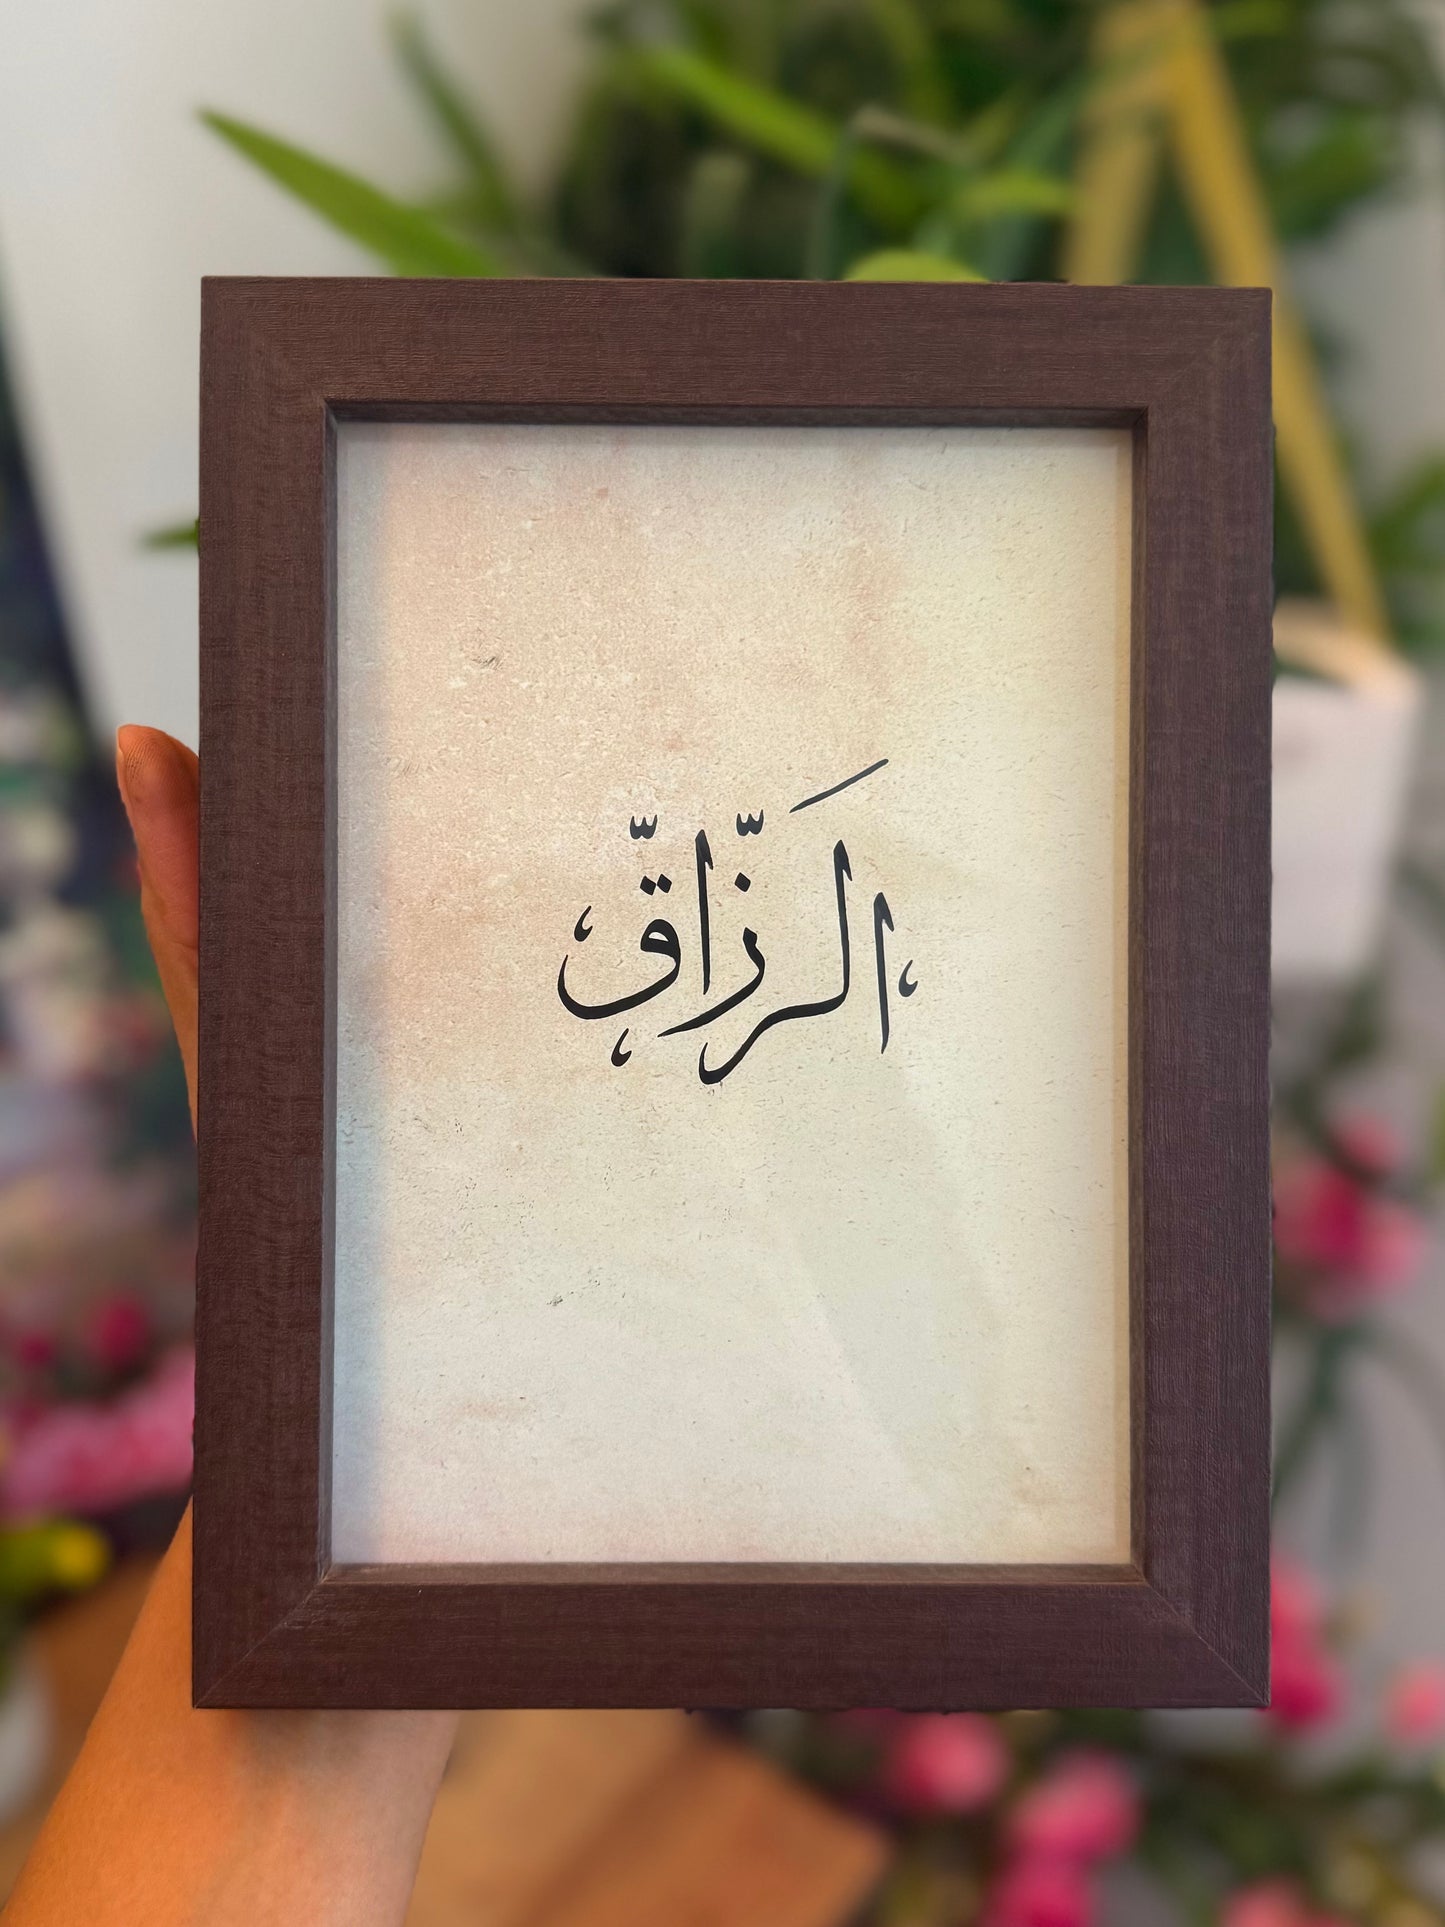 الرَزّاقّ